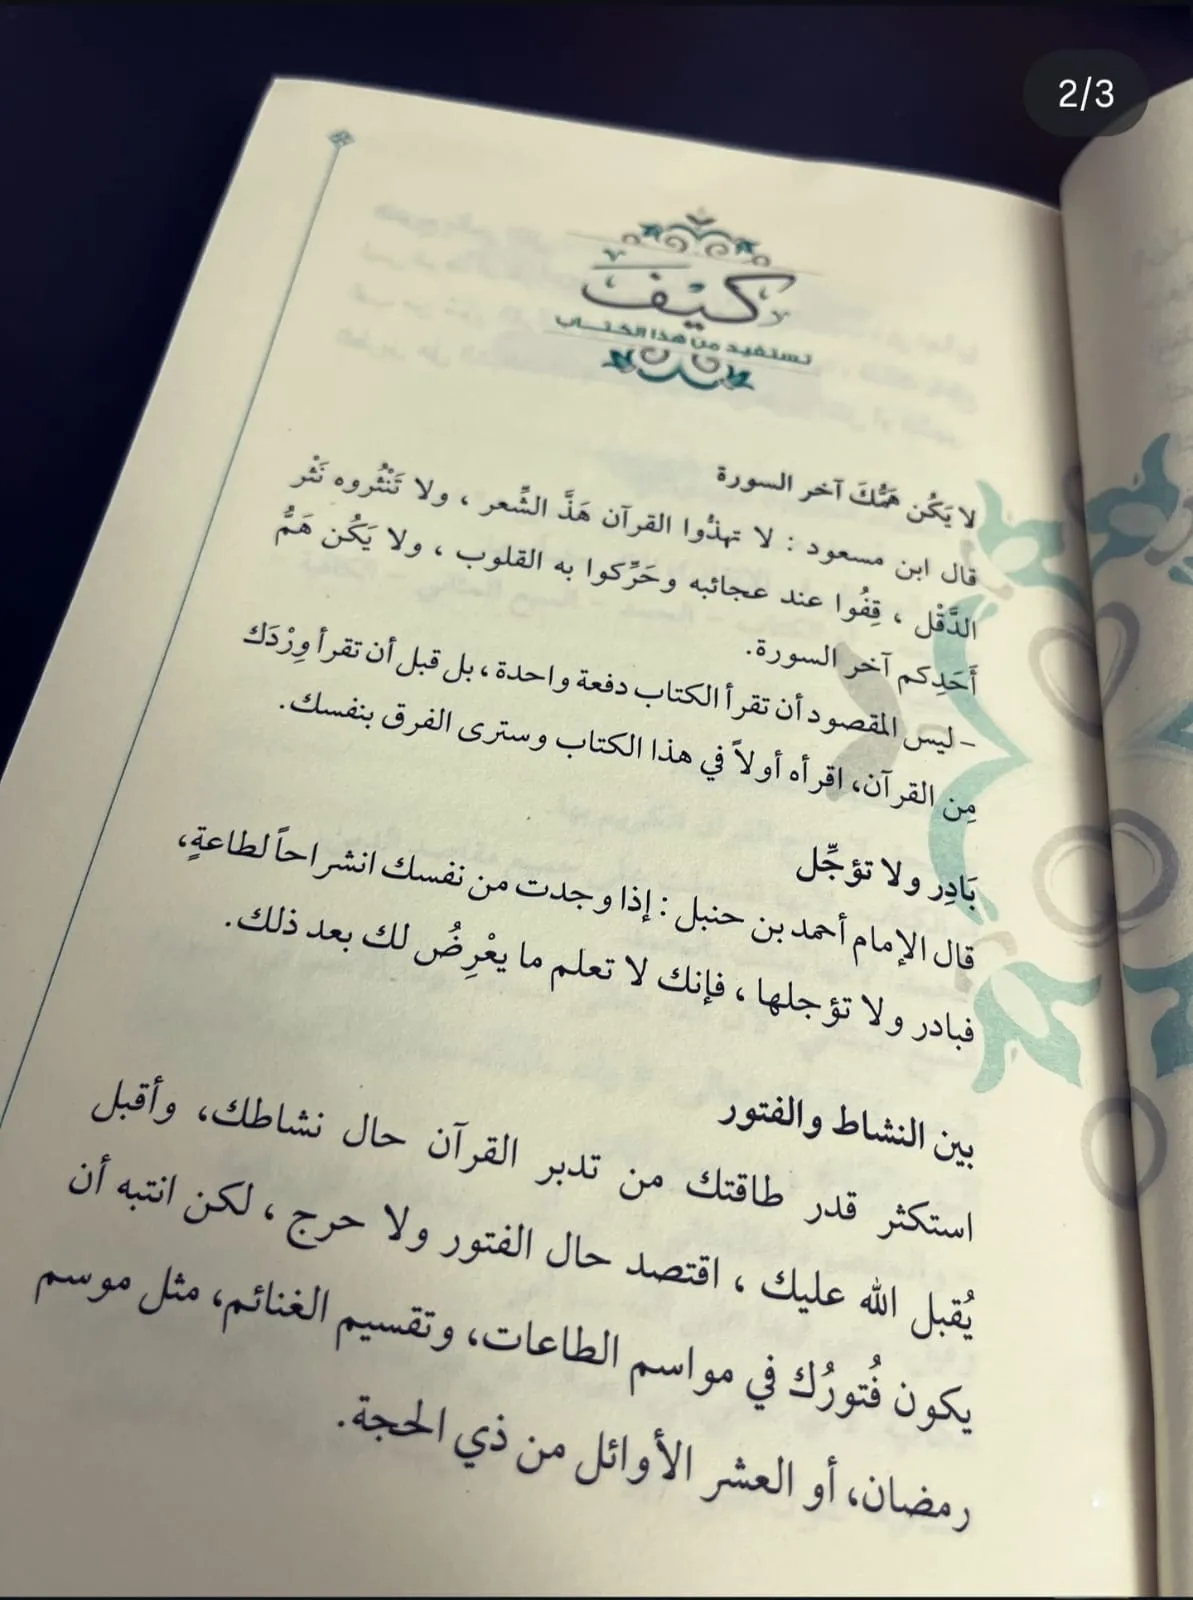 2/3
كيف
تستفيد من هذا الكتاب
لا يَكُن هَمُّكَ آخر السورة
قال ابن مسعود : لا تهذُّوا القرآن هَذَّ الشِّعر ، ولا تَنْثُروه نَثْر
الدَّقْل ، قِفُوا عند عجائبه وحَرِّكوا به القلوب ، ولا يَكُن هَمُّ
أَحَدِكم آخر السورة.
- ليس المقصود أن تقرأ الكتاب دفعة واحدة ، بل قبل أن تقرأ وِرْدَك
مِن القرآن، اقرأه أولاً في هذا الكتاب وسترى الفرق بنفسك.
بَادِر ولا تؤجِّل
قال الإمام أحمد بن حنبل : إذا وجدت من نفسك انشراحاً لطاعةٍ،
فبادر ولا تؤجلها ، فإنك لا تعلم ما يعْرِضُ لك بعد ذلك.
بين النشاط والفتور
استكثر قدر طاقتك من تدبر القرآن حال نشاطك، وأقبل
يُقبل الله عليك ، اقتصد حال الفتور ولا حرج ، لكن انتبه أن
يكون فُتورُك في مواسم الطاعات، وتقسيم الغنائم، مثل موسم
رمضان، أو العشر الأوائل من ذي الحجة.